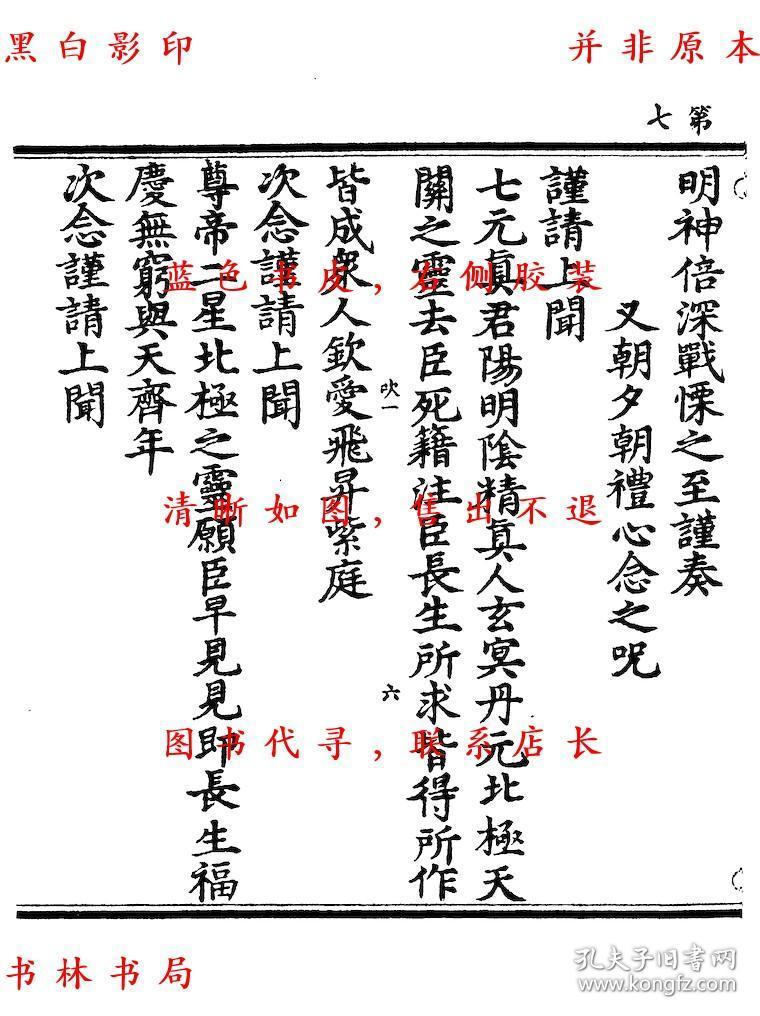 黑白影印
并非原本
第七
明神倍深戰慄之至謹奏
又朝夕朝禮心念之呪
謹請上聞
七元眞君陽明陰精眞人玄冥丹元北極天
關之靈去臣死籍注臣長生所求皆得所作
吠一
六
皆成衆人欽愛飛昇紫庭
次念謹請上聞
尊帝二星北極之靈願臣早見見即長生福
慶無窮與天齊年
次念謹請上聞
蓝色书皮，右侧胶装
清晰如图，售出不退
图书代寻，联系店长
书林书局
孔夫子旧书网
www.kongfz.com